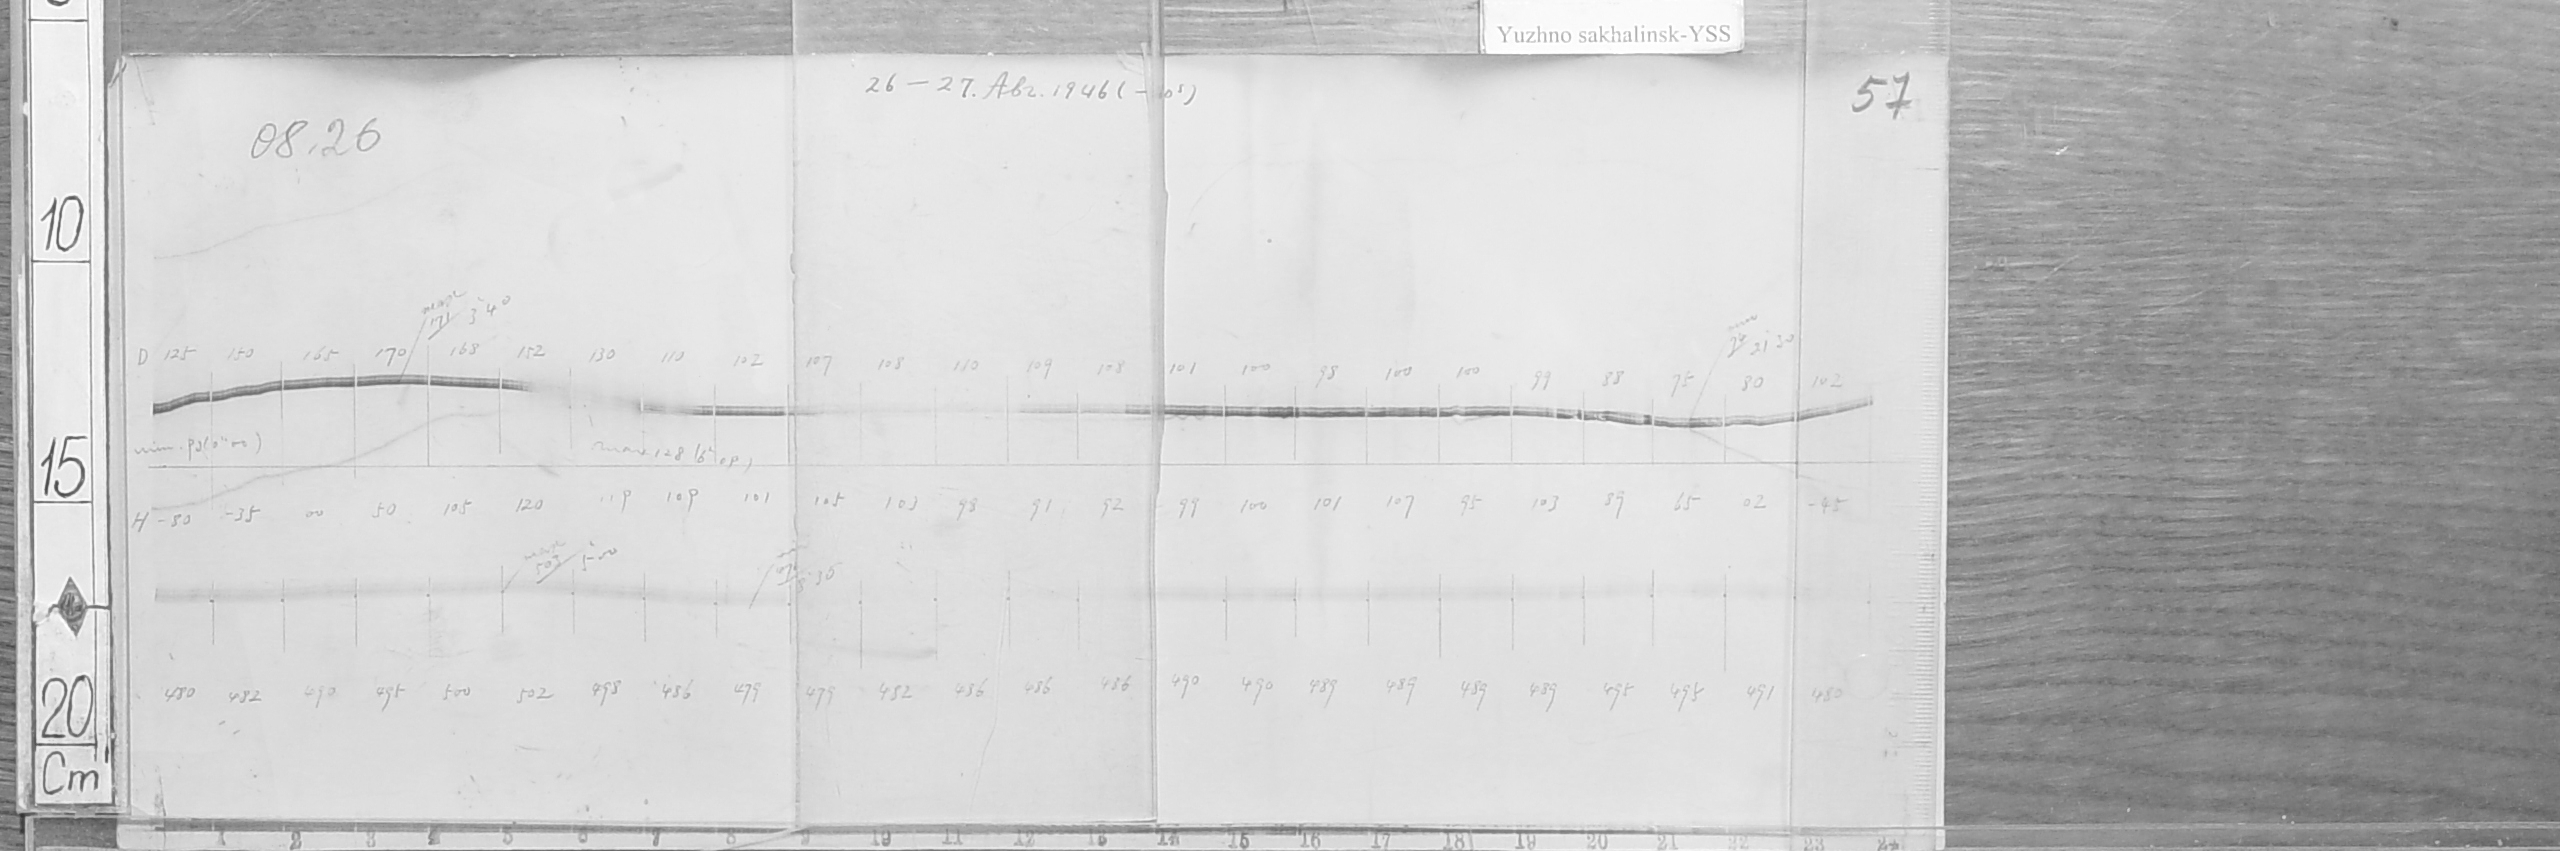 Yuzhno sakhalinsk-YSS
26 — 27. Abr. 1946 (
57
08.26
10
max
171 3 40
D 125 150 165 170 168 152 130 110 102 107 108 110 109 108 101 100 98 100 100 99 88 75 80 102
21 30
max 128
15
H -80 -35 00 50 105 120 119 109 101 105 103 98 91 92 99 100 101 107 95 103 89 65 02 -45
max
503 5 00
480 482 490 495 500 502 498 486 479 479 482 486 486 486 490 490 489 489 489 489 495 495 491 480
20
Cm
1 2 3 4 5 6 7 8 10 11 12 13 14 15 16 17 18 19 20 21 22 23 24